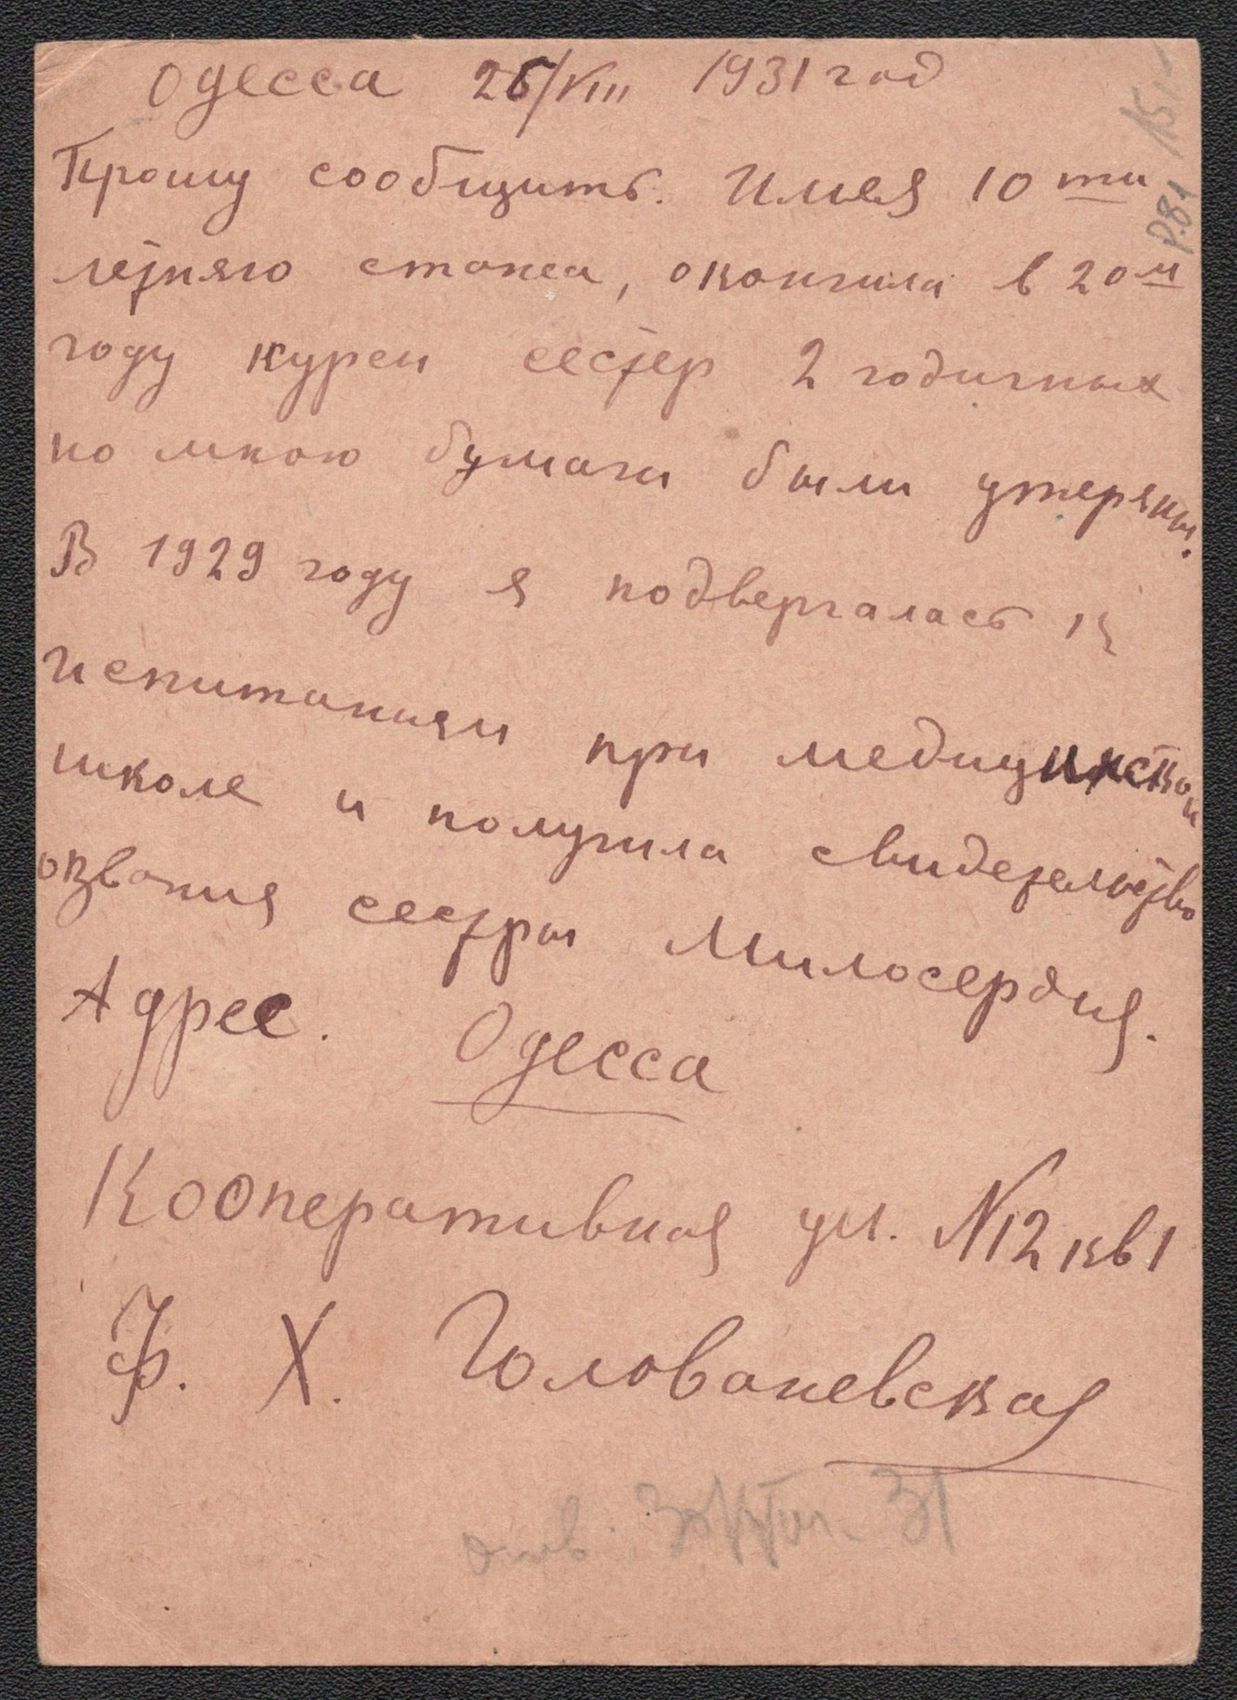 Одесса 26/VIII 1931 год
Прошу сообщить. Имея 10 ти
летняго стажа, окончила в 20 м
году курсы сестер 2 годичных
но мною бумаги были утеряны.
В 1929 году я подвергалась к
испитаниям при медицинской
школе и получила свидетельство
озвания сестры милосердия.
Адрес. Одесса
Кооперативная ул. N12 кв1
Ф. Х. Голованевская
отв. 31